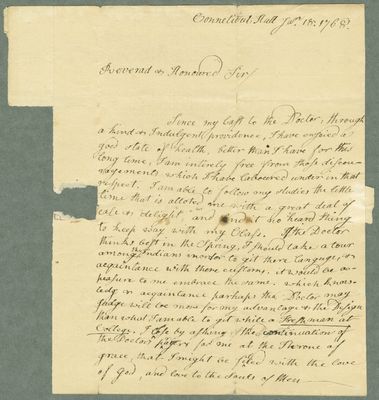 Connecticut Hall Jan. 18: 1768.
Reverad & Honoured Sir/
Since my last to the Doctor, through
a kind & Indulgent providence, I have enjoied a
good state of health, better than I have for this
long time, I am intirely free from those discou-
ragements which I have laboured under in that
respect. I am able to follow my studies the little
time that is alloted me with a great deal of
ease & delight and find it no heard thing
to keep way with my Class. If the Doctor
thinks best in the Spring, I should take a tour
among the Indians inorder to git there Language, &
acquaintance with those customs, it would be a
pleasure to me embrace the same. which know-
ledg & acquaintance parhaps the Doctor may
Judge will be more for my advantage & the Design
than what I am able to git while a Freshman at
College. I close by asking the continuation of
the Doctors prayers for me at the Throne of
grace, that I might be filed with the love
of God and love to the Souls of Men—